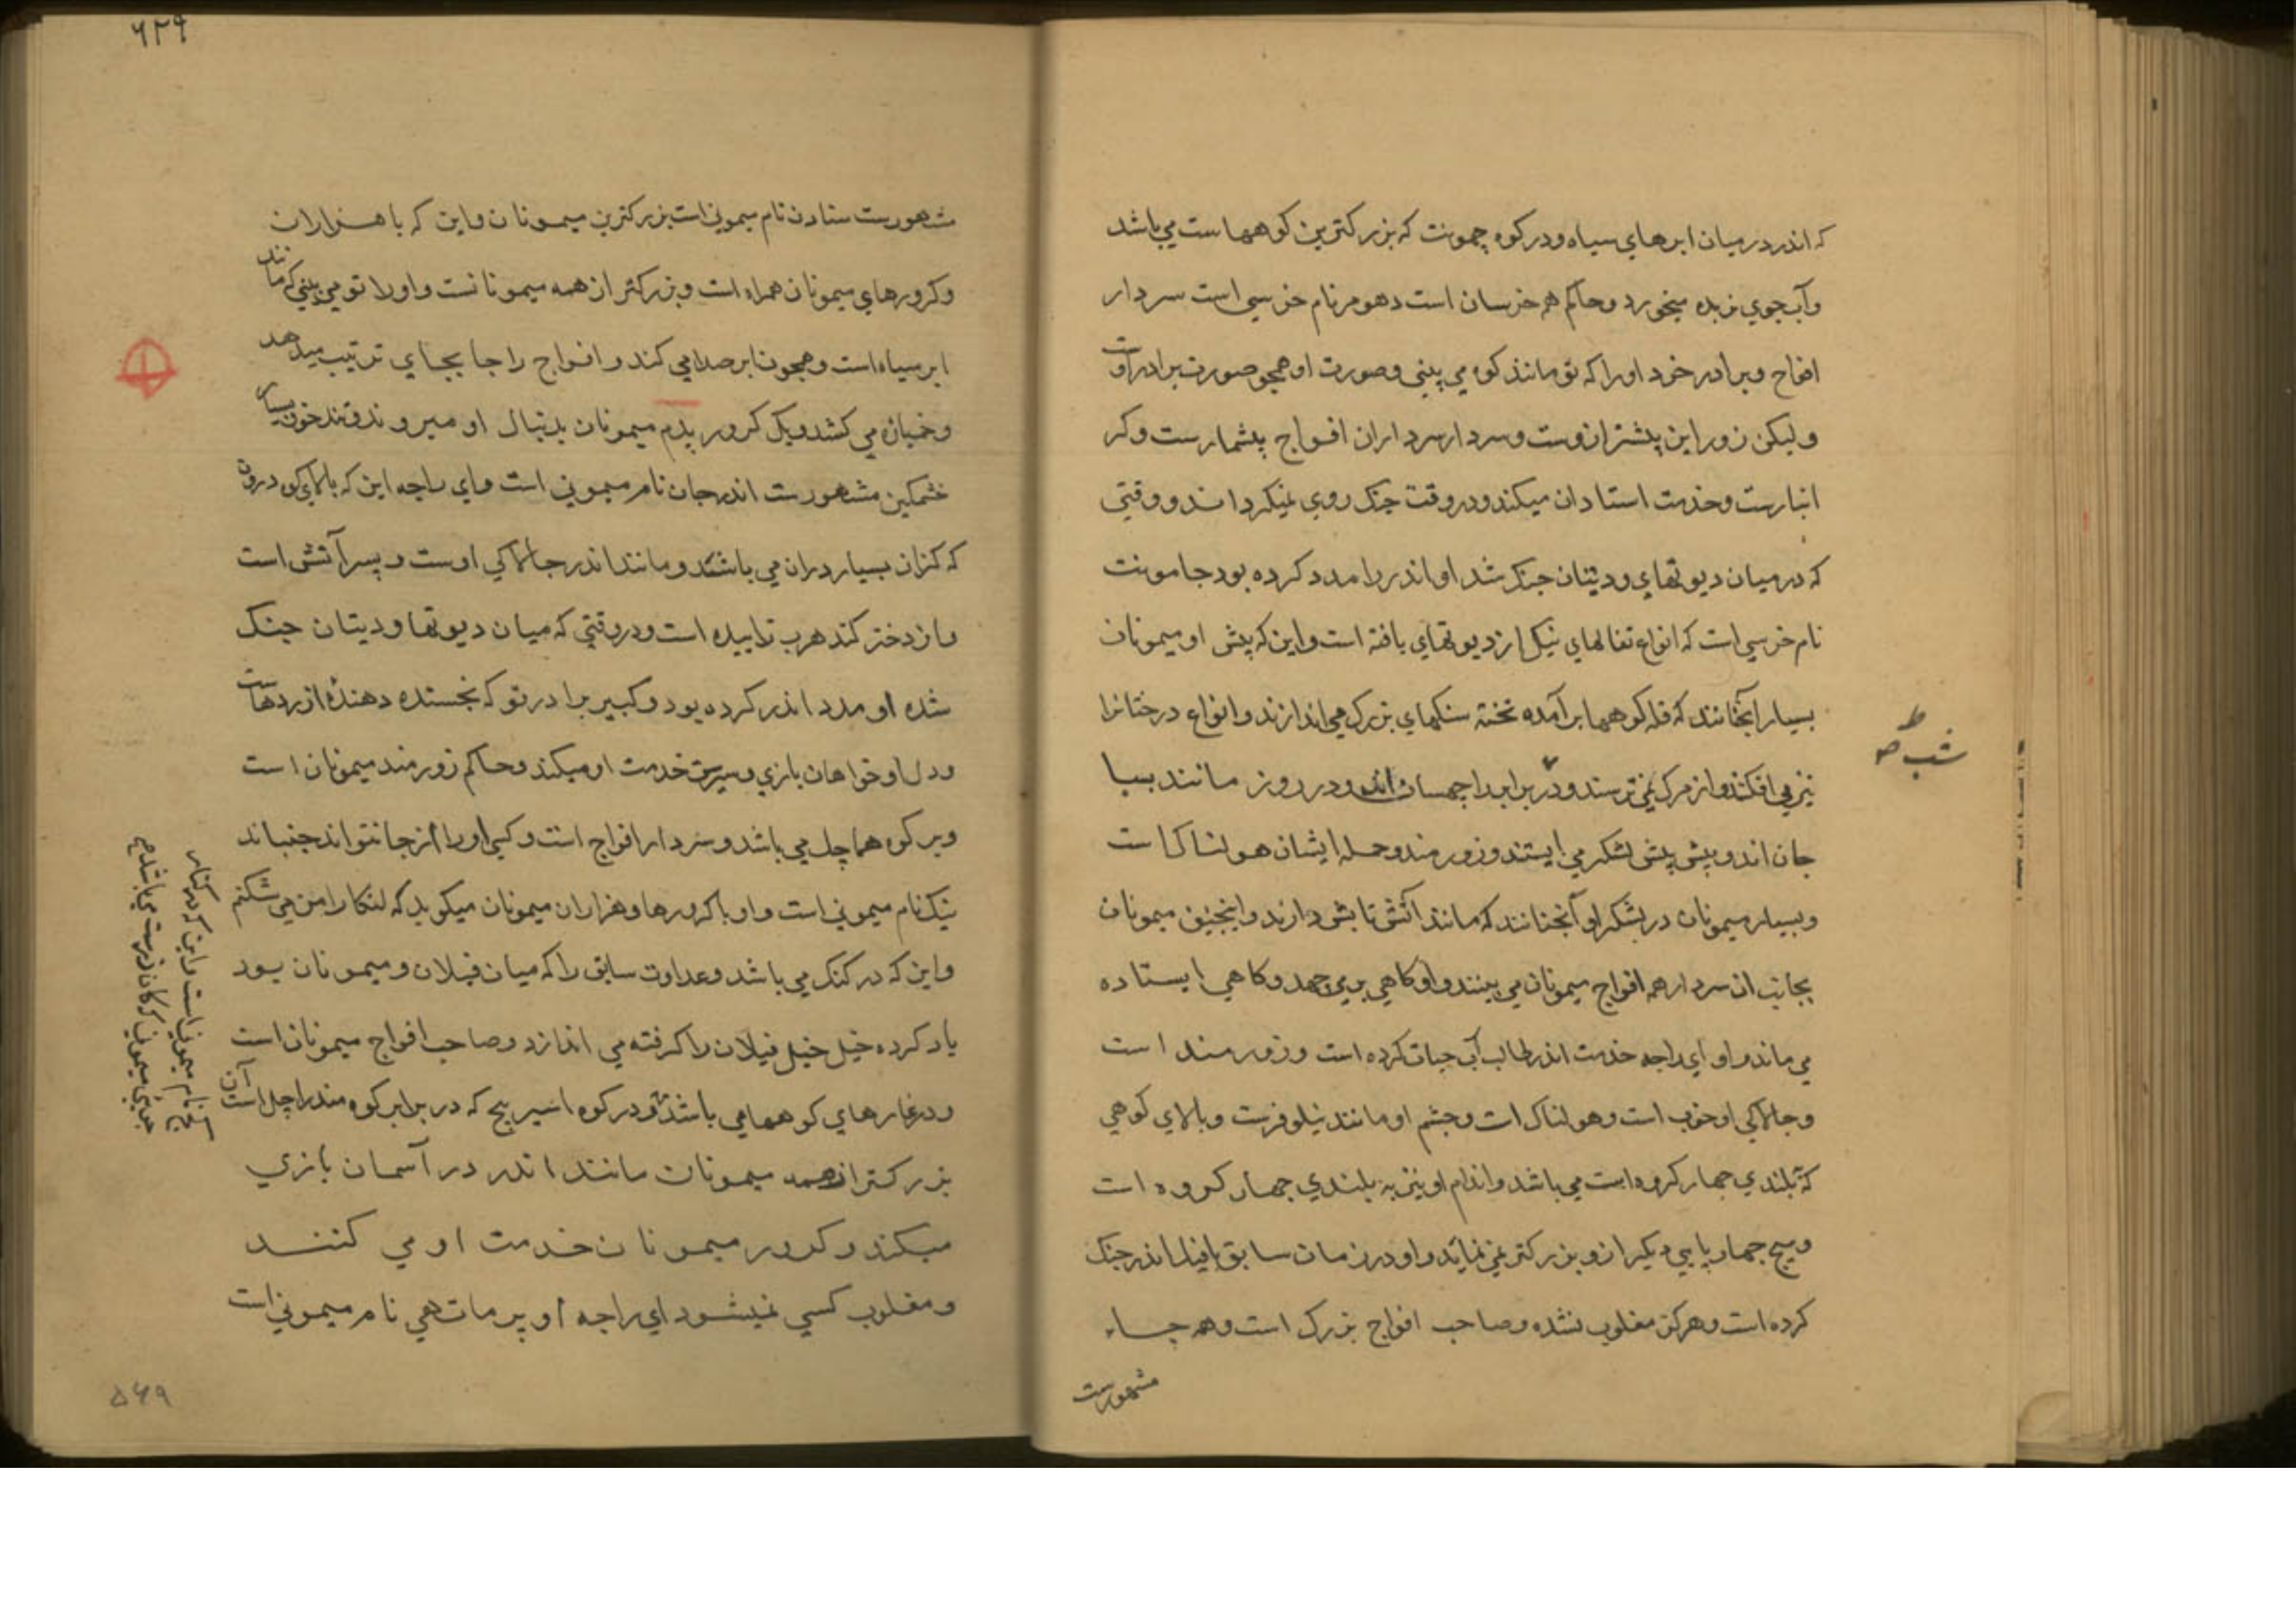 که اندر در میان ابرهای سیاه و در کوه چمونت که بزرگترین کوهها ست می باشد
و آب جوی نربده میخورد و حاکم همه خرسان است دهومر نام خرسی است سردار
افواج و برادر خرد او را که تو مانند کوه می بینی و صورت او همچو صورت برادر اوست
و لیکن زور این بیشتر ازوست و سردار سرداران افواج بیشمارست و کر
انبارست و خدمت استادان میکند و در وقت جنک روی نمیکرداند و وقتی
که در میان دیوتهای و دیتان جنک شد او اندر را مدد کرده بود جامونت
نام خرسی است که انواع تفالهای نیک از دیوتهای یافته است و این که پیش او میمونان
بسیار آنچنانند که قله کوهها برآمده تخته سنکهای بزرک می اندازند و انواع درختانرا
نیز می افکنند و از مرک نمی ترسند و در برابر راچهسان اند و در روز مانند بیبا
جان اند و پیش پیش لشکر می ایستند و زورمند و حمله ایشان هولناک است
و بسیار میمونان در لشکر او آنچنانند که مانند آتش تابش دارند و اینچنین میمونان
بجانب ان سردار همه افواج میمونان می بینند و او کاهی بر می جهد و کاهی ایستاده
می ماند و او ای راجه خدمت اندر طالب آب حیات کرده است و زورمند است
و چالاکی او خوب است و هولناک است و چشم او مانند نیلوفرست و بالای کوهی
که بلندی چهار کروه است می باشد و اندام او نیز به بلندی چهار کروه است
و هیچ چهار پایی دیکر ازو بزرکتر نمی نماید و او در زمان سابق با فیل اندر جنک
کرده است و هرکز مغلوب نشده و صاحب افواج بزرک است و همه جا
مشهورست
۶۲۹
مشهورست سنادن نام میمونی است بزرکترین میمونان و این که با هزاران
و کرورهای میمونان همراه است و بزرکتر از همه میمونانست و او را تو می بینی که مانند
ابر سیاه است و همچون ابر صدا می کند و افواج را جا بجای ترتیب میدهد
و خمیان می کشد و یک کرور پدم میمونان بدنبال او میروند و تند خو بسیار
خشمکین مشهورست اندرجان نام میمونی است و ای راجه این که بالای کوه درون
که کنران بسیار دران می باشند و مانند اندر چالاکی اوست و پسر آتش است
و از دختر کندهرب زاییده است و در وقتی که میان دیوتها و دیتان جنک
شده او مدد اندر کرده بود و کبیر برادر تو که بخشنده دهنده از ردهاست
و دل او خواهان بازی و سیرست خدمت او میکند و حاکم زورمند میمونان است
و بر کوه هماچل می باشد و سردار افواج است و کسی او را از جا نتواند جنباند
نیک نام میمونی است و او با کرورها و هزاران میمونان میکوید که لنکا را من می شکنم
و این که در کنک می باشد و عداوت سابق را که میان فیلان و میمونان بود
یاد کرده خیل خیل فیلان را کرفته می اندازد و صاحب افواج میمونان است
و در غارهای کوهها می باشد و در کوه اسیر بیج که در برابر کوه مندراچل است آن
بزرکتر از همه میمونان مانند اندر در آسمان بازی
میکند و کرور میمونان خدمت او می کنند
و مغلوب کسی نمیشود ای راجه او پرماتهی نام میمونی است
نام میمونی است و این که در کنار
۵۶۹